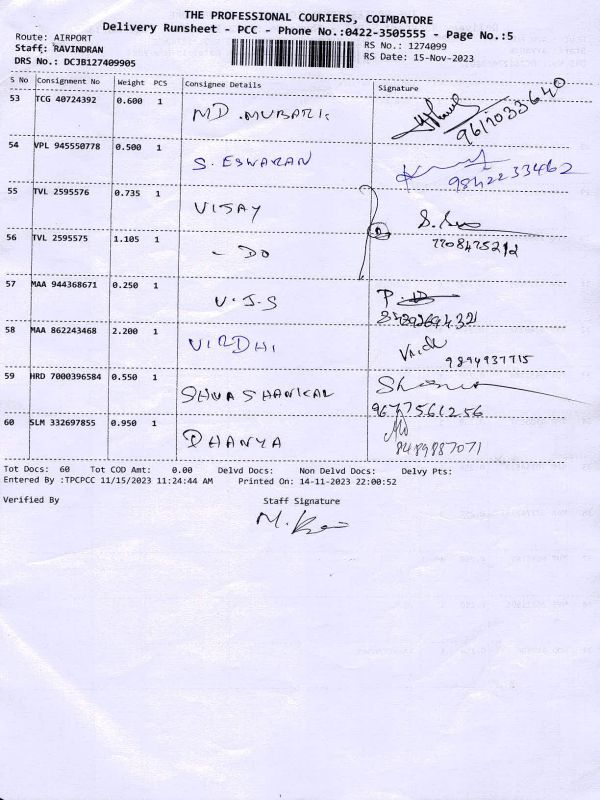 THE PROFESSIONAL COURIERS, COIMBATORE
Delivery Runsheet - PCC - Phone No.:0422-3505555 - Page No.:5
Route: AIRPORT
Staff: RAVINDRAN
DRS No.: DCJB127409905
RS No.: 1274099
RS Date: 15-Nov-2023
S No Consignment No Weight PCS Consignee Details Signature
53 TCG 40724392 0.600 1 MD.MUBARIK
9617033640
54 VPL 945550778 0.500 1 S. ESWARAN
9842233462
55 TVL 2595576 0.735 1 VIJAY
7708475212
56 TVL 2595575 1.105 1 - DO
57 MAA 944368671 0.250 1 V.J.S
58 MAA 862243468 2.200 1 VIRDHI
9894937715
59 HRD 7000396584 0.550 1 SHIVA SHANKAR
9677561256
60 SLM 332697855 0.950 1 DHANYA
8489887071
Tot Docs: 60 Tot COD Amt: 0.00 Delvd Docs: Non Delvd Docs: Delvy Pts:
Entered By :TPCPCC 11/15/2023 11:24:44 AM Printed On: 14-11-2023 22:00:52
Verified By Staff Signature